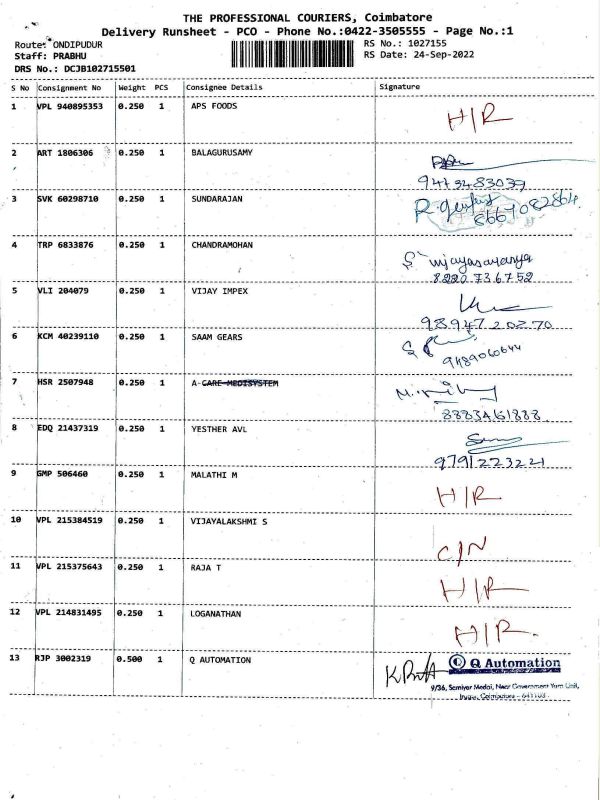 THE PROFESSIONAL COURIERS, Coimbatore
Delivery Runsheet - PCO - Phone No.:0422-3505555 - Page No.:1
Route: ONDIPUDUR
RS No.: 1027155
Staff: PRABHU
RS Date: 24-Sep-2022
DRS No.: DCJB102715501
S No Consignment No Weight PCS Consignee Details Signature
1 VPL 940895353 0.250 1 APS FOODS H/R
2 ART 1806306 0.250 1 BALAGURUSAMY
9473483037
3 SVK 60298710 0.250 1 SUNDARAJAN
8667082864
4 TRP 6833876 0.250 1 CHANDRAMOHAN
8220736752
5 VLI 204079 0.250 1 VIJAY IMPEX
9894720270
6 KCM 40239110 0.250 1 SAAM GEARS
9489060644
7 HSR 2507948 0.250 1 A-CARE MEDISYSTEM
8883461888
8 EDQ 21437319 0.250 1 YESTHER AVL
9791223221
9 GMP 506460 0.250 1 MALATHI M H/R
10 VPL 215384519 0.250 1 VIJAYALAKSHMI S C/N
11 VPL 215375643 0.250 1 RAJA T H/R
12 VPL 214831495 0.250 1 LOGANATHAN H/R
13 RJP 3002319 0.500 1 Q AUTOMATION Q Automation
9/36, Samiyar Medai, Near Government Yarn Unit,
Coimbatore - 641103